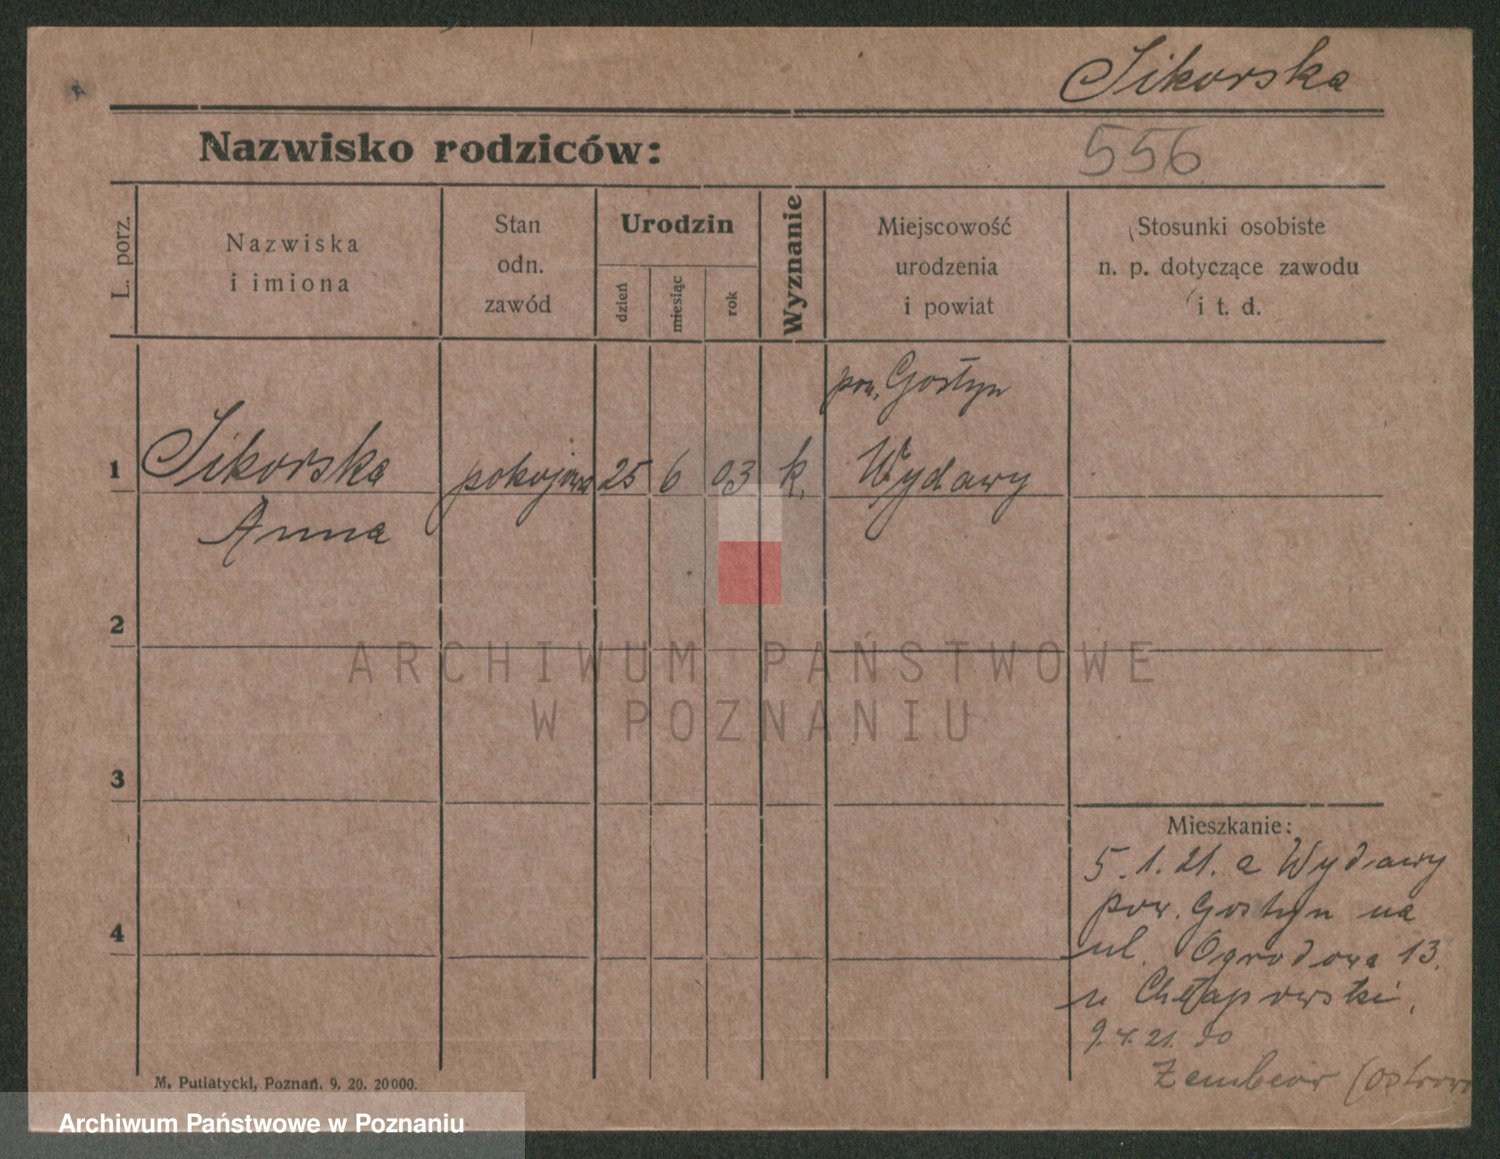 Sikorska
Nazwisko rodziców:
556
L. porz.
Nazwiska
i imiona
Stan
odn.
zawód
Urodzin
dzień
miesiąc
rok
Wyznanie
Miejscowość
urodzenia
i powiat
Stosunki osobiste
n. p. dotyczące zawodu
i t. d.
pow. Gostyn
1
Sikorska
pokojowa
25
6
03
k.
Wydawy
Anna
2
ARCHIWUM PAŃSTWOWE
W POZNANIU
3
Mieszkanie:
5.1.21. a Wydawy
pow. Gostyn na
4
ul. Ogrodowa 13.
u Chłapowski.
9.4.21. do
(Ostrowo
M. Putiatycki, Poznań. 9. 20. 20000.
Archiwum Państwowe w Poznaniu